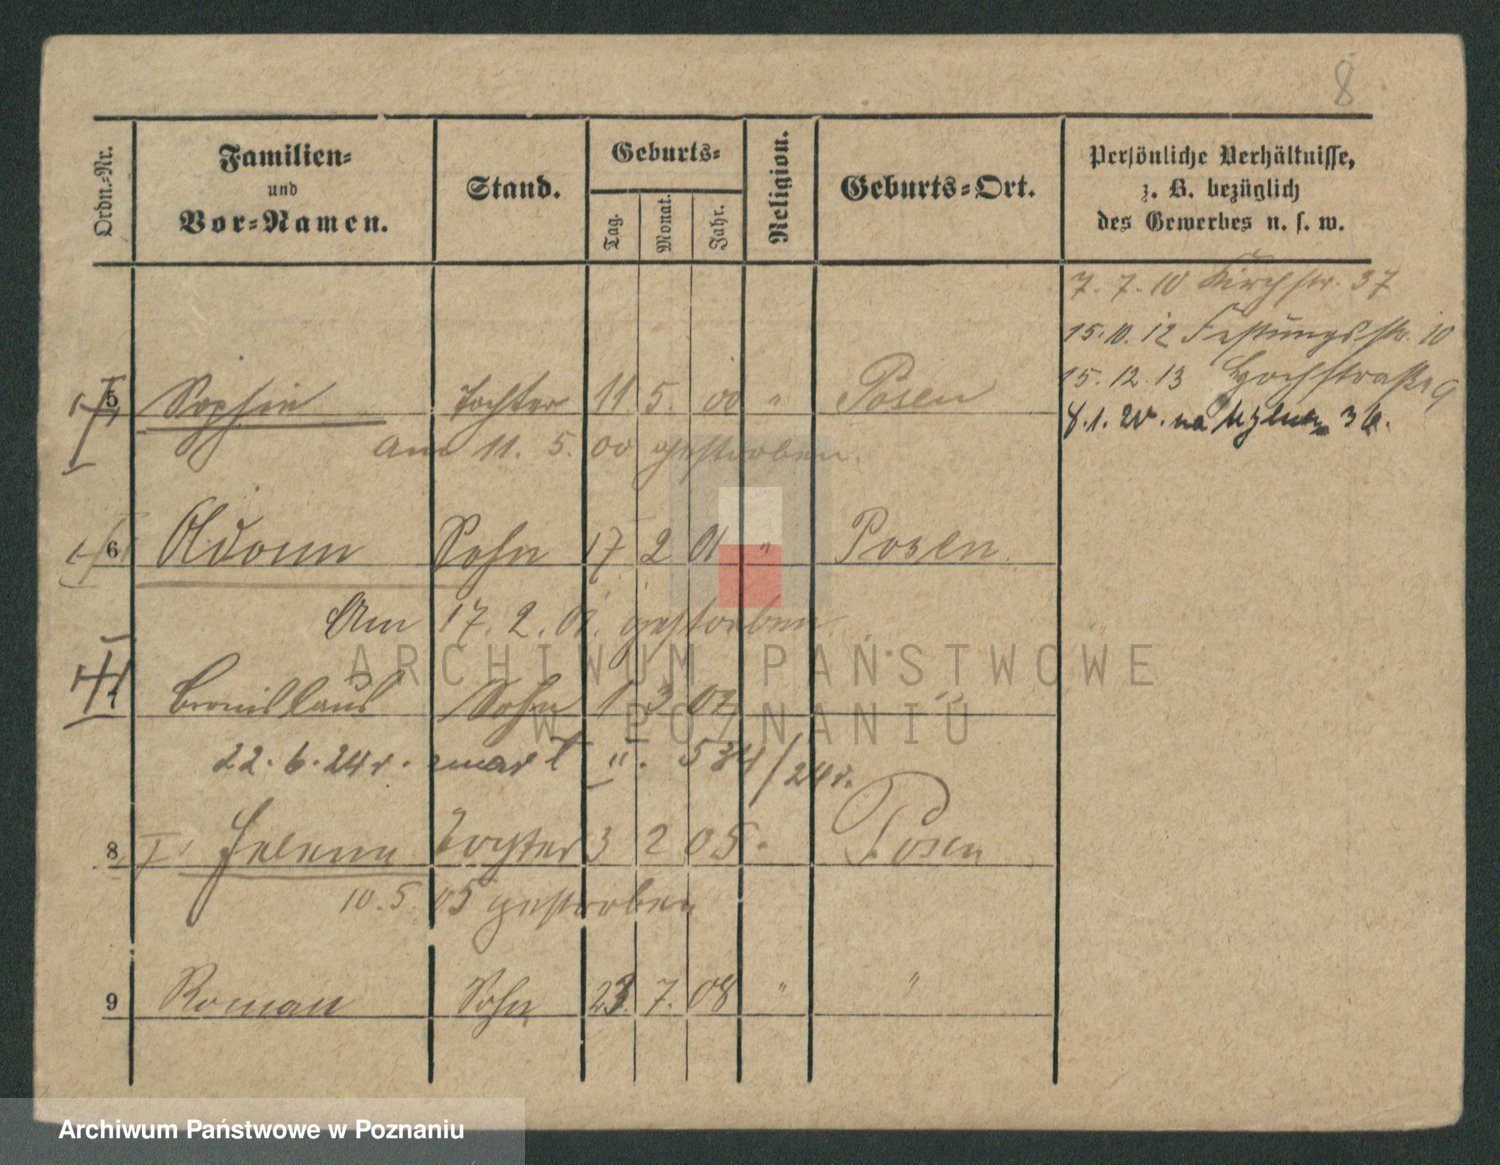 8
Ordn.-Nr.
Familien-
und
Vor-Namen.
Stand.
Geburts-
Tag.
Monat.
Jahr.
Religion.
Geburts-Ort.
Persönliche Verhältnisse,
z. B. bezüglich
des Gewerbes u. s. w.
7. 7. 10 Kirchstr. 37
15. 10. 12 Festungsstr. 10
15. 12. 13 Hochstraße 9
8. 1. 20. na 36.
5 Sophie Tochter 11. 5. 00 " Posen
am 11. 5. 00 gestorben.
6 Adam Sohn 17 2 01 " Posen
Am 17. 2. 01. gestorben
Bronislaus Sohn 1 3 02 "
22. 6. 24 r. zmarł 534/24 r.
8 Helene Tochter 3 2 05. Posen
10. 5. 05 gestorben
9 Roman Sohn 23. 7. 08 " "
ARCHIWUM PAŃSTWOWE
W POZNANIU
Archiwum Państwowe w Poznaniu